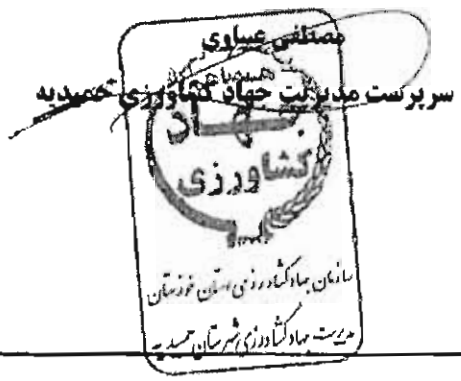 مصطفی عبیاوی
سرپرست مدیریت جهاد کشاورزی حمیدیه
جهاد
کشاورزی
سازمان جهاد کشاورزی استان خوزستان
مدیریت جهاد کشاورزی شهرستان حمیدیه